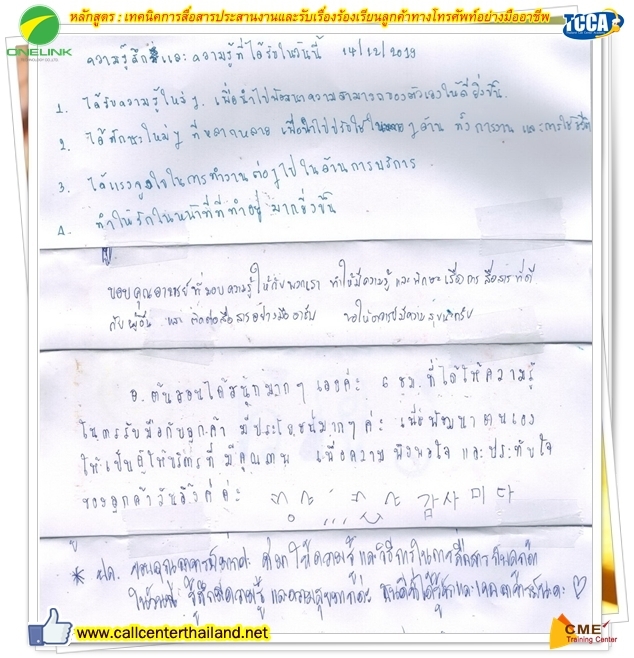 หลักสูตร : เทคนิคการสื่อสารประสานงานและรับเรื่องร้องเรียนลูกค้าทางโทรศัพท์อย่างมืออาชีพ
ONELINK
TCCA
ความรู้สึกและความรู้ที่ได้รับในวันนี้ 14/12/2019
1. ได้รับความรู้ใหม่ๆ เพื่อนำไปพัฒนาความสามารถของตัวเองให้ดียิ่งขึ้น
2. ได้ทักษะใหม่ๆ ที่หลากหลาย เพื่อนำไปปรับใช้ในหลายๆด้าน ทั้งการงาน และการใช้ชีวิต
3. ได้แรงจูงใจในการทำงานต่อๆไป ในด้านการบริการ
4. ทำให้รักในหน้าที่ที่ทำอยู่ มากยิ่งขึ้น
ขอบคุณอาจารย์ที่มอบความรู้ให้กับพวกเรา ทำให้มีความรู้ และทักษะเรื่องการสื่อสารที่ดี
กับผู้อื่น และ ติดต่อสื่อสารอย่างมืออาชีพ ขอให้อาจารย์มีความสุขนะครับ
อ. ต้นสอนได้สนุกมากๆ เลยค่ะ 6 ชม. ที่ได้ให้ความรู้
ในการรับมือกับลูกค้า มีประโยชน์มากๆค่ะ เพื่อพัฒนาตนเอง
ให้เป็นผู้ให้บริการที่มีคุณภาพ เพื่อความพึงพอใจ และประทับใจ
ของลูกค้า ค่ะ 감사미다
ขอบคุณอาจารย์ ให้ความรู้ และวิธีการในการสื่อสาร
ความรู้ และ ♡
www.callcenterthailand.net
CME
Training Center